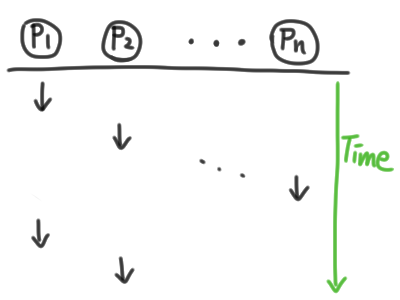 P1 P2 ... Pn
Time